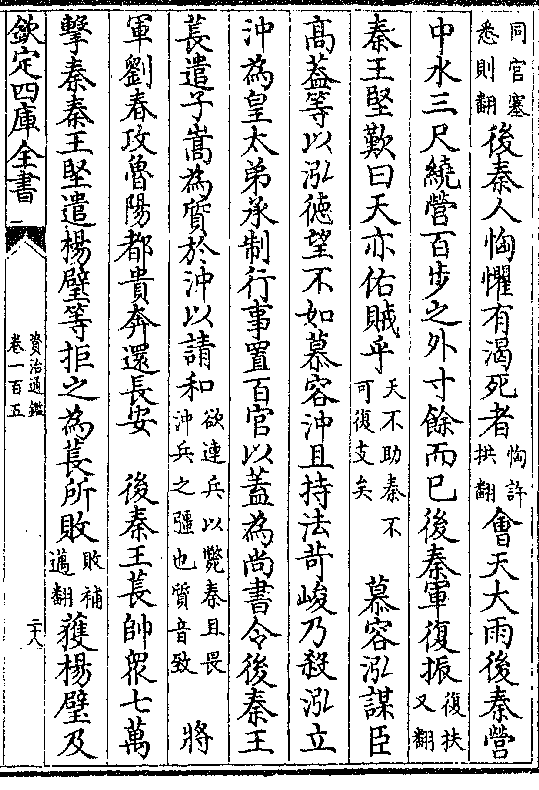 同官塞悉則翻後秦人恟懼有渴死者恟許拱翻會天大雨後秦營
中水三尺繞營百步之外寸餘而已後秦軍復振復扶又翻
秦王堅歎曰天亦佑賊乎天不助秦不可復支矣 慕容泓謀臣
高蓋等以泓徳望不如慕容沖且持法苛峻乃殺泓立
沖為皇太弟承制行事置百官以蓋為尚書令後秦王
萇遣子嵩為質於沖以請和欲連兵以斃秦且畏沖兵之彊也質音致 將
軍劉春攻魯陽都貴奔還長安 後秦王萇帥衆七萬
擊秦秦王堅遣楊璧等拒之為萇所敗敗補邁翻獲楊璧及
欽定四庫全書
資治通鑑
卷一百五
二十八